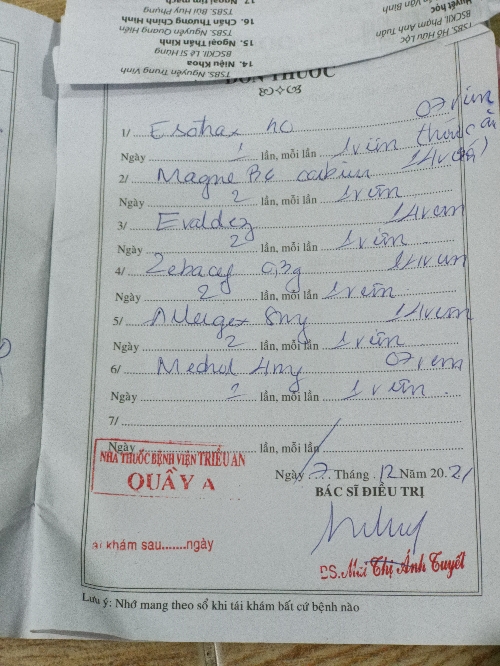 17. Ngoại tim mạch
TSBS. Bùi Huy Phụng
16. Chấn Thương Chỉnh Hình
TSBS. Nguyễn Quang Hiền
15. Ngoại Thần Kinh
BSCKII. Lê Sĩ Hùng
14. Niệu Khoa
TSBS. Nguyễn Trung Vinh
Văn Bình
BSCKII. Phạm Anh Tuấn
Huyết học
TSBS. Hồ Hữu Lộc
ĐƠN THUỐC
1/ Esotrax 40 07 viên
Ngày 1 lần, mỗi lần 1 viên
2/ Magne B6 14 viên
Ngày 2 lần, mỗi lần 1 viên
3/ Evaldez 14 viên
Ngày 2 lần, mỗi lần 1 viên
4/ Zebacef 0,3g 14 viên
Ngày 2 lần, mỗi lần 1 viên
5/ 8mg 14 viên
Ngày 2 lần, mỗi lần 1 viên
6/ Medrol 4mg 07 viên
Ngày 1 lần, mỗi lần 1 viên
7/
Ngày lần, mỗi lần
NHÀ THUỐC BỆNH VIỆN TRIỀU AN
QUẦY A
Ngày 7 Tháng 12 Năm 2021
BÁC SĨ ĐIỀU TRỊ
ái khám sau.......ngày
BS. Mai Thị Ánh Tuyết
Lưu ý: Nhớ mang theo sổ khi tái khám bất cứ bệnh nào